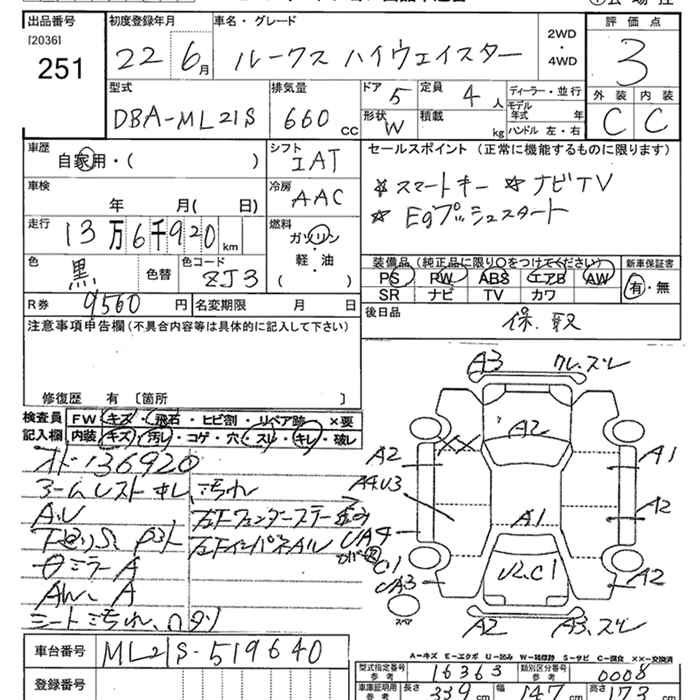 出品番号
[2036]
251
初度登録年月
22 6月
車名・グレード
ルークス ハイウェイスター
2WD
・
4WD
評価点
3
外装 内装
C C
型式
DBA-ML21S
排気量
660 CC
ドア 5
形状 W
定員 4人
積載 kg
ディーラー・並行
モデル年式 年
ハンドル 左・右
車歴
自家用・( )
シフト
IAT
セールスポイント (正常に機能するものに限ります)
☆スマートキー ☆ナビTV
☆Egプッシュスタート
車検
年 月( 日)
冷房
AAC
走行
13万6千920km
燃料
ガソリン
軽・油
( )
色
黒 色替
色コード
ZJ3
装備品(純正品に限り○をつけてください)
PS PW ABS エアB AW
SR ナビ TV カワ
新車保証書
有・無
R券 9560円
名変期限 月 日
後日品
保、取
注意事項申告欄(不具合内容等は具体的に記入して下さい)
修復歴 有 〔箇所 〕
検査員
記入欄
FW キズ・飛石・ヒビ割・リペア跡 ×要
内装 キズ・汚レ・コゲ・穴・スレ・キレ・破レ
136920
アームレスト キレ 汚れ
A.U
ミラーA
AW、A
シート汚れ、
A3 クレ.スレ
A2
XX
A2
A1
A4U3
A2
A1
UA4
C1
UA3
A2
スペア
A2
A3.スレ
A-キズ E-エクボ U-凹み W-補修跡 S-サビ C-腐食 ××-交換済
車台番号
ML21S-519640
登録番号
型式指定番号
参考
16363
類別区分番号
参考
0008
車庫証明用
参考
長さ 339cm
幅 147cm
高さ 173cm